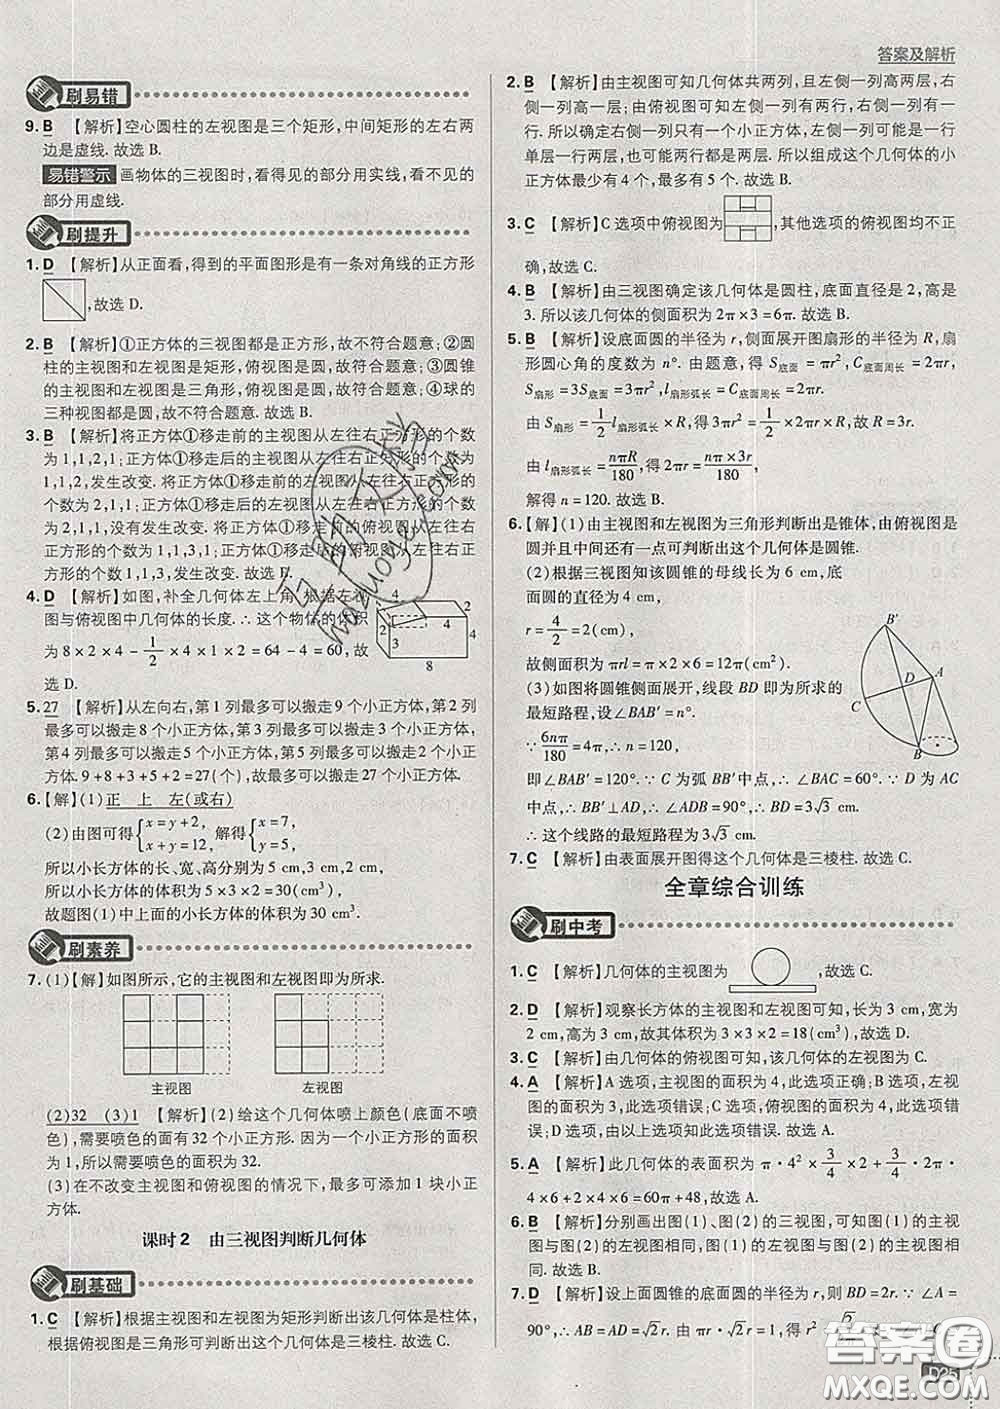 答案及解析
刷易错
9. B 【解析】空心圆柱的左视图是三个矩形,中间矩形的左右两
边是虚线. 故选 B.
易错警示 画物体的三视图时,看得见的部分用实线,看不见的
部分用虚线.
刷提升
1. D 【解析】从正面看,得到的平面图形是有一条对角线的正方形
,故选 D.
2. B 【解析】①正方体的三视图都是正方形,故不符合题意;②圆
柱的主视图和左视图是矩形,俯视图是圆,故符合题意;③圆
锥的主视图和左视图是三角形,俯视图是圆,故符合题意;④球的
三种视图都是圆,故不符合题意. 故选 B.
3. B 【解析】将正方体①移走前的主视图从左往右正方形的个数
为 1,1,2,1;正方体①移走后的主视图从左往右正方形的个数为
1,1,2,1,没有发生改变. 将正方体①移走前的左视图从左往右正方形
的个数为 2,1,1;正方体①移走后的左视图从左往右正方形的
个数为 2,1,1,没有发生改变. 将正方体①移走前的俯视图从左往
右正方形的个数为 1,1,3,1;正方体①移走后的俯视图从左往右正
方形的个数 1,1,3,发生改变. 故选 B.
4. D 【解析】如图,补全几何体左上角,根据左视
图与俯视图中几何体的长度. ∴ 这个物体的体积
为 8 × 2 × 4 − 1/2 × 4 × 1 × 2 = 64 − 4 = 60, 故
选 D.
2 4 2 3 4 4 8
5. 27 【解析】从左向右,第 1 列最多可以搬走 9 个小正方体,第 2 列
最多可以搬走 8 个小正方体,第 3 列最多可以搬走 3 个小正方体,
第 4 列最多可以搬走 5 个小正方体,第 5 列最多可以搬走 2 个小正
方体. 9 + 8 + 3 + 5 + 2 = 27(个),故最多可以搬走 27 个小正方体.
6. 【解】(1)正 上 左(或右)
(2)由图可得{x = y + 2, x + y = 12, 解得{x = 7, y = 5,
所以小长方体的长、宽、高分别为 5 cm,3 cm,2 cm,
所以小长方体的体积为 5 × 3 × 2 = 30(cm³),
故题图(1)中上面的小长方体的体积为 30 cm³.
刷素养
7. (1)【解】如图所示,它的主视图和左视图即为所求.
主视图 左视图
(2)32 (3)1 【解析】(2)给这个几何体喷上颜色(底面不喷
色),需要喷色的面有 32 个小正方形. 因为一个小正方形的面积
为 1,所以需要喷色的面积为 32.
(3)在不改变主视图和俯视图的情况下,最多可添加 1 块小正
方体.
课时 2 由三视图判断几何体
刷基础
1. C 【解析】根据主视图和左视图为矩形判断出该几何体是柱体,
根据俯视图是三角形可判断出这个几何体是三棱柱. 故选 C.
2. B 【解析】由主视图可知几何体共两列,且左侧一列高两层,右
侧一列高一层;由俯视图可知几何体左侧一列有两行,右侧一列有一
行. 所以确定右侧一列只有一个小正方体,左侧可能是一行
单层一行两层,也可能两行都是两层. 所以组成这个几何体的小
正方体最少有 4 个,最多有 5 个. 故选 B.
3. C 【解析】C 选项中俯视图为 ,其他选项的俯视图均不正
确,故选 C.
4. B 【解析】由三视图确定该几何体是圆柱,底面直径是 2,高是
3. 所以该几何体的侧面积为 2π × 3 = 6π. 故选 B.
5. B 【解析】设底面圆的半径为 r,侧面展开图扇形的半径为 R,扇
形圆心角的度数为 n°. 由题意,得 S底面 = πr², C底面周长 = 2πr,
S扇形 = 3S底面 = 3πr², l扇形弧长 = C底面周长 = 2πr.
由 S扇形 = 1/2 l扇形弧长 × R, 得 3πr² = 1/2 × 2πr × R, 故 R = 3r.
由 l扇形弧长 = nπR/180, 得 2πr = nπ × 3r/180,
解得 n = 120. 故选 B.
6. 【解】(1)由主视图和左视图为三角形判断出是锥体,由俯视图是
圆并且中间还有一点可判断出这个几何体是圆锥.
(2)根据三视图知该圆锥的母线长为 6 cm,底
面圆的直径为 4 cm,
r = 4/2 = 2(cm),
故侧面积为 πrl = π × 2 × 6 = 12π(cm²).
(3)如图将圆锥侧面展开,线段 BD 即为所求的
最短路程,设∠BAB′ = n°.
∵ 6nπ/180 = 4π, ∴ n = 120,
即∠BAB′ = 120°. ∵ C 为弧 BB′中点, ∴ ∠BAC = 60°. ∵ D 为 AC
中点, ∴ BB′⊥AD, ∴ ∠ADB = 90°, ∴ BD = 3√3 cm.
∴ 这个线路的最短路程为 3√3 cm.
B′ D A C B
7. C 【解析】由表面展开图得这个几何体是三棱柱. 故选 C.
全章综合训练
刷中考
1. C 【解析】几何体的主视图为 ,故选 C.
2. D 【解析】观察长方体的主视图和左视图可知,长为 3 cm,宽为
2 cm,高为 3 cm,故其体积为 3 × 3 × 2 = 18(cm³),故选 D.
3. C 【解析】由几何体的俯视图可知,该几何体的左视图为C.
4. A 【解析】A 选项,主视图的面积为 4,此选项正确;B 选项,左视
图的面积为 3,此选项错误;C 选项,俯视图的面积为 4,此选项错
误;D 选项,由以上选项知此选项错误. 故选 A.
5. A 【解析】此几何体的表面积为 π · 4² × 3/4 × 2 + 3/4 · 2π ·
4 × 6 + 4 × 6 × 2 = 60π + 48,故选 A.
6. B 【解析】分别画出图(1)、图(2)的三视图,可知图(1)的主视
图与图(2)的主视图相同,图(1)的左视图与图(2)的左视图
相同. 故选 B.
7. D 【解析】设上面圆锥的底面的半径为 r,则 BD = 2r. ∵ ∠A =
90°, ∴ AB = AD = √2r. 由 πr · √2r = 1, 得 r²
答案圈
MXQE.COM
D25